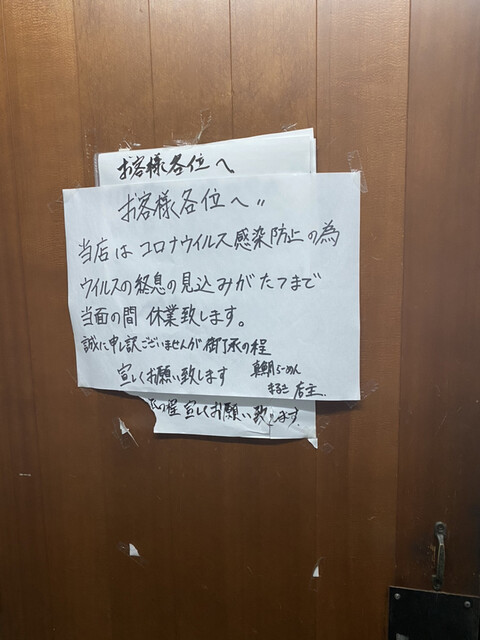 お客様各位へ
お客様各位へ〃
当店はコロナウイルス感染防止の為
ウイルスの終息の見込みがたつまで
当面の間 休業致します。
誠に申し訳ございませんが御了承の程
宜しくお願い致します
真鯛らーめん
まるこ 店主..
の程 宜しくお願い致します.